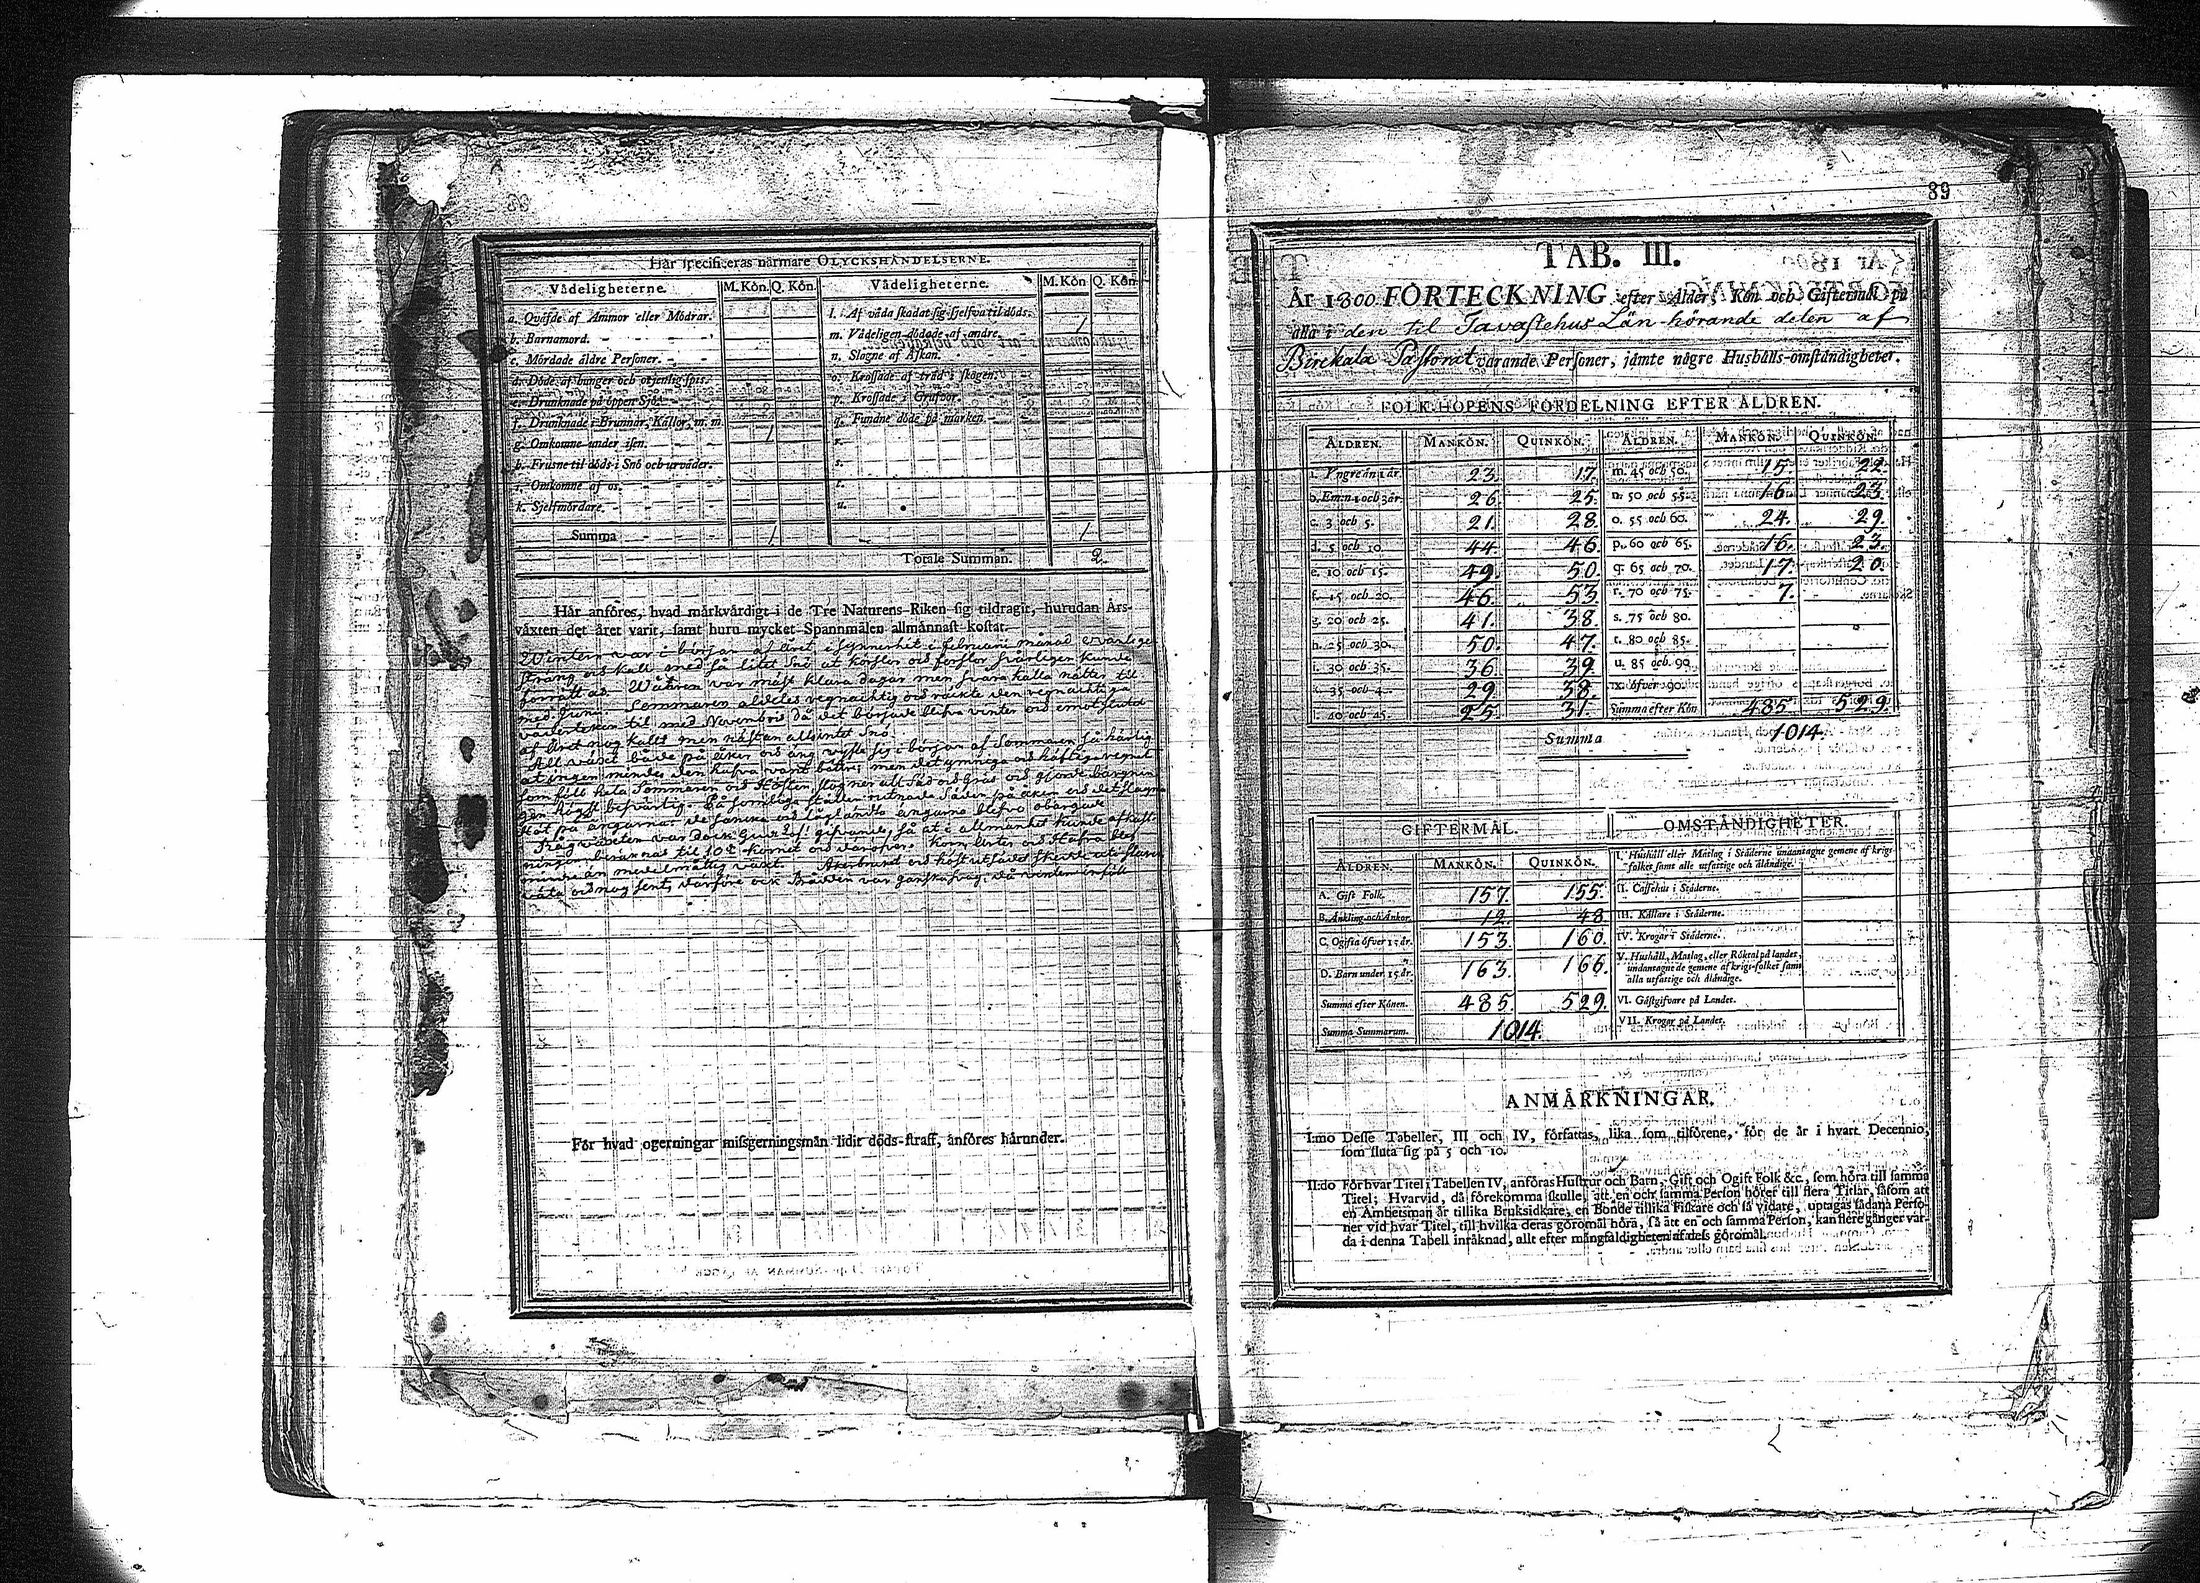 Här specificeras närmare OLYCKSHÄNDELSERNE.
Vådeligheterne. M. Kön. Q. Kön. Vådeligheterne. M. Kön Q. Kön
a. Qväfde af Ammor eller Mödrar. l. Af våda skadat sig sjelfva til döds.
b. Barnamord. m. Vådeligen dödade af andre. 1
c. Mördade äldre Personer. n. Slagne af Åskan.
d. Döde af hunger och otjenlig spis. o. Krossade af träd i skogen.
e. Drunknade på öppen Sjö. p. Krossade i Grufvor.
f. Drunknade i Brunnar, Källor, m. m. q. Fundne döde på marken.
g. Omkomne under isen. 1 r.
h. Frusne til döds i Snö och urväder. s.
i. Omkomne af os. t.
k. Sjelfmördare. u.
Summa 1 1
Totale Summan. 2.
Här anföres, hvad märkvärdigt i de Tre Naturens-Riken sig tildragit, hurudan Års-
växten det året varit, samt huru mycket Spannmålen allmännast kostat.
Wintern var i början af året, i synnerhet i februarii månad ovanligen
sträng och kall med så litet Snö at körslor och forslor svårligen kunde
förrättas. Wåhren var mäst klara dagar men svara kalla nätter til
med Junii. Sommaren aldeles regnachtig och räckte den regnachtiga
väderleken til med Novembris då det började blifva vinter och emot slutet
af Året nog kallt men nästan alsintet Snö.
All växt både på åker och äng vi
at ingen mindes den hafva varit bättre; men det ymniga och häftiga regnet
som föll hela Sommaren och Hösten slog ner all Säd och Gräs och gjorde bärgnin
gen högst besvärlig. På somliga ställen rutnade Säden på åkren och det slagna
Höt på ängarna
Rågväxten var dock
mindre än medelmåttig växt. Åkerbruk och höstutsädet skedde
våta och nog sent, därföre ock Brådden var ganska svag, då vintern inföll
För hvad ogerningar missgerningsmän lidit döds-straff, anföres härunder.
89
TAB. III.
År 1800. FÖRTECKNING efter Ålder, Kön och Giftermål på
alla i den til Tavastehus Län hörande delen af
Birckala Pastorat varande Personer, jämte någre Hushålls-omständigheter.
FOLK-HOPENS FÖRDELNING EFTER ÅLDREN.
ÅLDREN. MANKÖN. QUINKÖN. ÅLDREN. MANKÖN. QUINKÖN.
a. Yngre än 1 år. 23. 17. m. 45 och 50. 15. 22.
b. Em:n 1 och 3 år. 26. 25. n. 50 och 55. 16. 23.
c. 3 och 5. 21. 28. o. 55 och 60. 24. 29.
d. 5 och 10. 44. 46. p. 60 och 65. 16. 23.
e. 10 och 15. 49. 50. q. 65 och 70. 17. 20.
f. 15 och 20. 46. 53. r. 70 och 75. 7.
g. 20 och 25. 41. 38. s. 75 och 80.
h. 25 och 30. 50. 47. t. 80 och 85.
i. 30 och 35. 36. 39. u. 85 och 90.
k. 35 och 4 29. 38. x. öfver 90.
40 och 45. 25. 31. Summa efter Kön 485 529.
Summa 1014.
GIFTERMÅL. OMSTÄNDIGHETER.
ÅLDREN. MANKÖN. QUINKÖN. I. Hushåll eller Matlag i Städerne undantagne gemene af krigs-
folket samt alle utfattige och åländige.
A. Gift Folk. 157. 155. II. Caffehus i Städerne.
B. Änkling. och Änkor. 12. 48 III. Källare i Städerne.
C. Ogifta öfver 15 år. 153. 160. IV. Krogar i Städerne.
D. Barn under 15 år. 163. 166. V. Hushåll, Matlag, eller Röktal på landet,
undantagne de gemene af krigs-folket samt
alla utfattige och åländige.
Summa efter Könen. 485. 529. VI. Gästgifvare på Landet.
Summa Summarum. 1014. VII. Krogar på Landet.
ANMÄRKNINGAR.
I:mo Desse Tabeller, III och IV, författas, lika som tilförene, för de år i hvart Decennio,
som sluta sig på 5 och 10.
II:do För hvar Titel i Tabellen IV, anföras Hustrur och Barn, Gift och Ogift Folk &c., som höra till samma
Titel; Hvarvid, då förekomma skulle, att en och samma Person hörer till flera Titlar, såsom att
en Ämbetsman är tillika Bruksidkare, en Bonde tillika Fiskare och så vidare, uptagas sådana Perso-
ner vid hvar Titel, till hvilka deras göromål höra, så att en och samma Person, kan flere gånger var-
da i denna Tabell inräknad, allt efter mångfaldigheten af dess göromål.